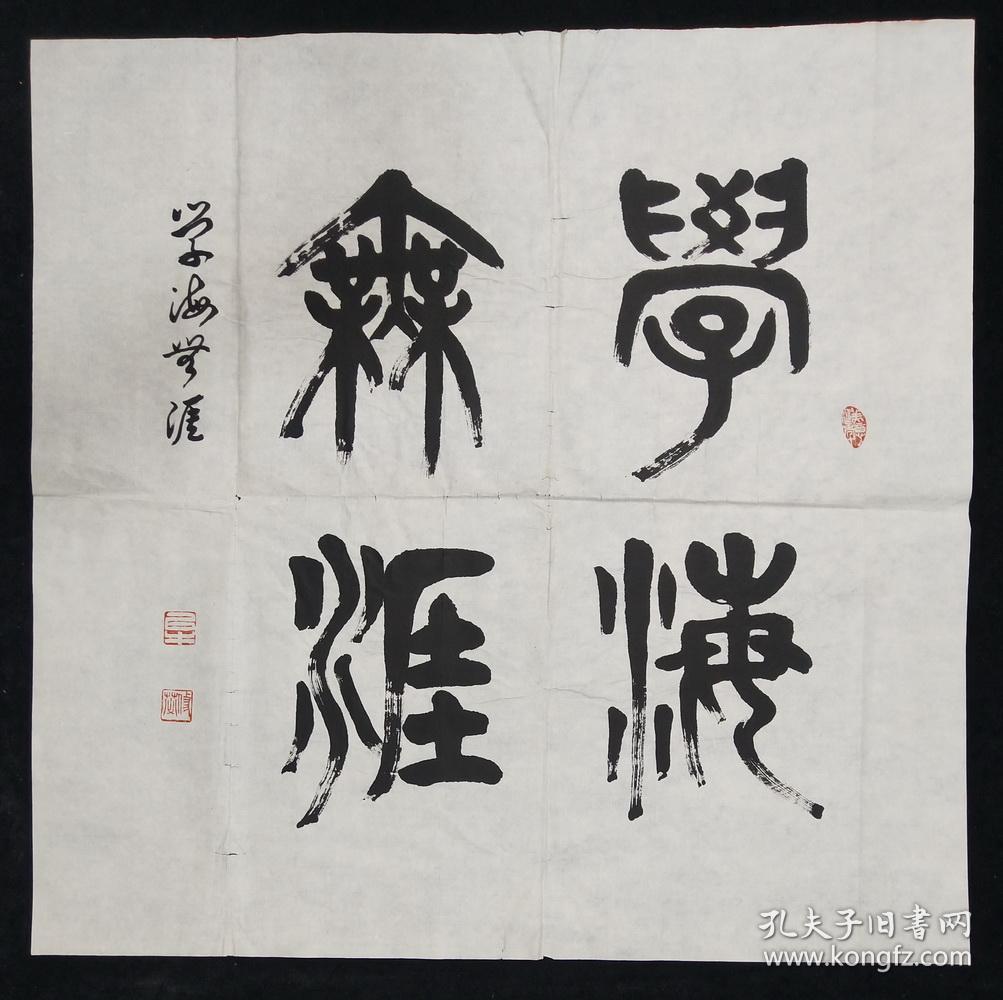 學海
無涯
学海無涯
孔夫子旧書网
www.kongfz.com